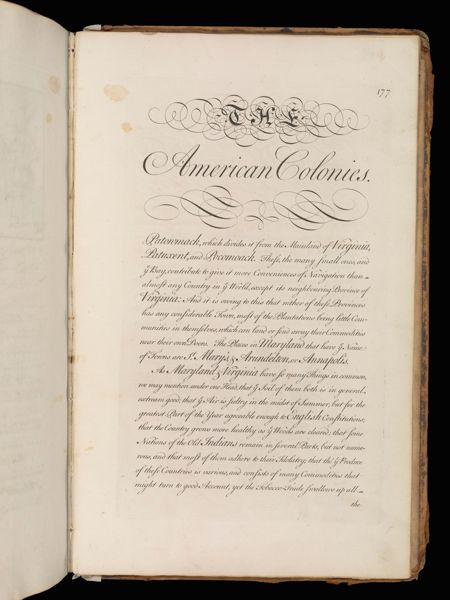 177
THE
American Colonies.
Patowmack, which divides it from the Mainland of Virginia,
Patuxent, and Pocomouck. These, the many small ones, and
ÿ Bay, contribute to give it more Conveniences of Navigation than
almost any Country in ÿ World, except its neighbouring Province of
Virginia: And it is owing to this that nither of these Provinces
has any considerable Town, most of the Plantations being little Com-
munities in themselves, which can land or send away their Commodities
near their own Doors. The Places in Maryland that have ÿ Name
of Towns are St. Mary's, & Arundelton, or Annapolis.
As Maryland & Virginia have so many Things in common,
we may mention under one Head, that ÿ Soil of them both is in general,
extream good; that ÿ Air is sultry in the midst of Summer, but for the
greatest Part of the Year agreeable enough to English Constitutions;
that the Country grows more healthy as ÿ Woods are cleared; that some
Nations of the Old Indians remain in several Parts, but not nume-
rous, and that most of them adhere to their Idolatry; that the ÿ Produce
of these Countries is various, and consists of many Commodities that
might turn to good Account, yet the Tobacco-Trade swallows up all
the